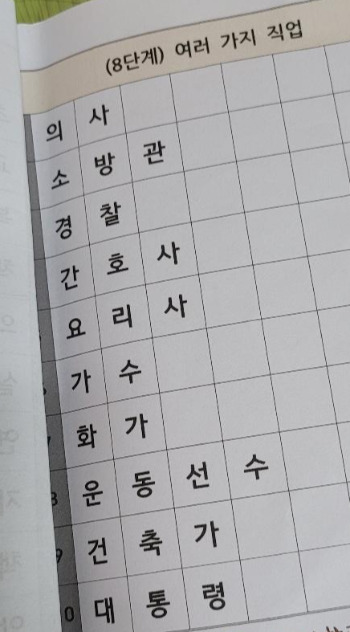 (8단계) 여러 가지 직업
의사
소방관
경찰
간호사
요리사
가수
7 화가
8 운동선수
9 건축가
10 대통령